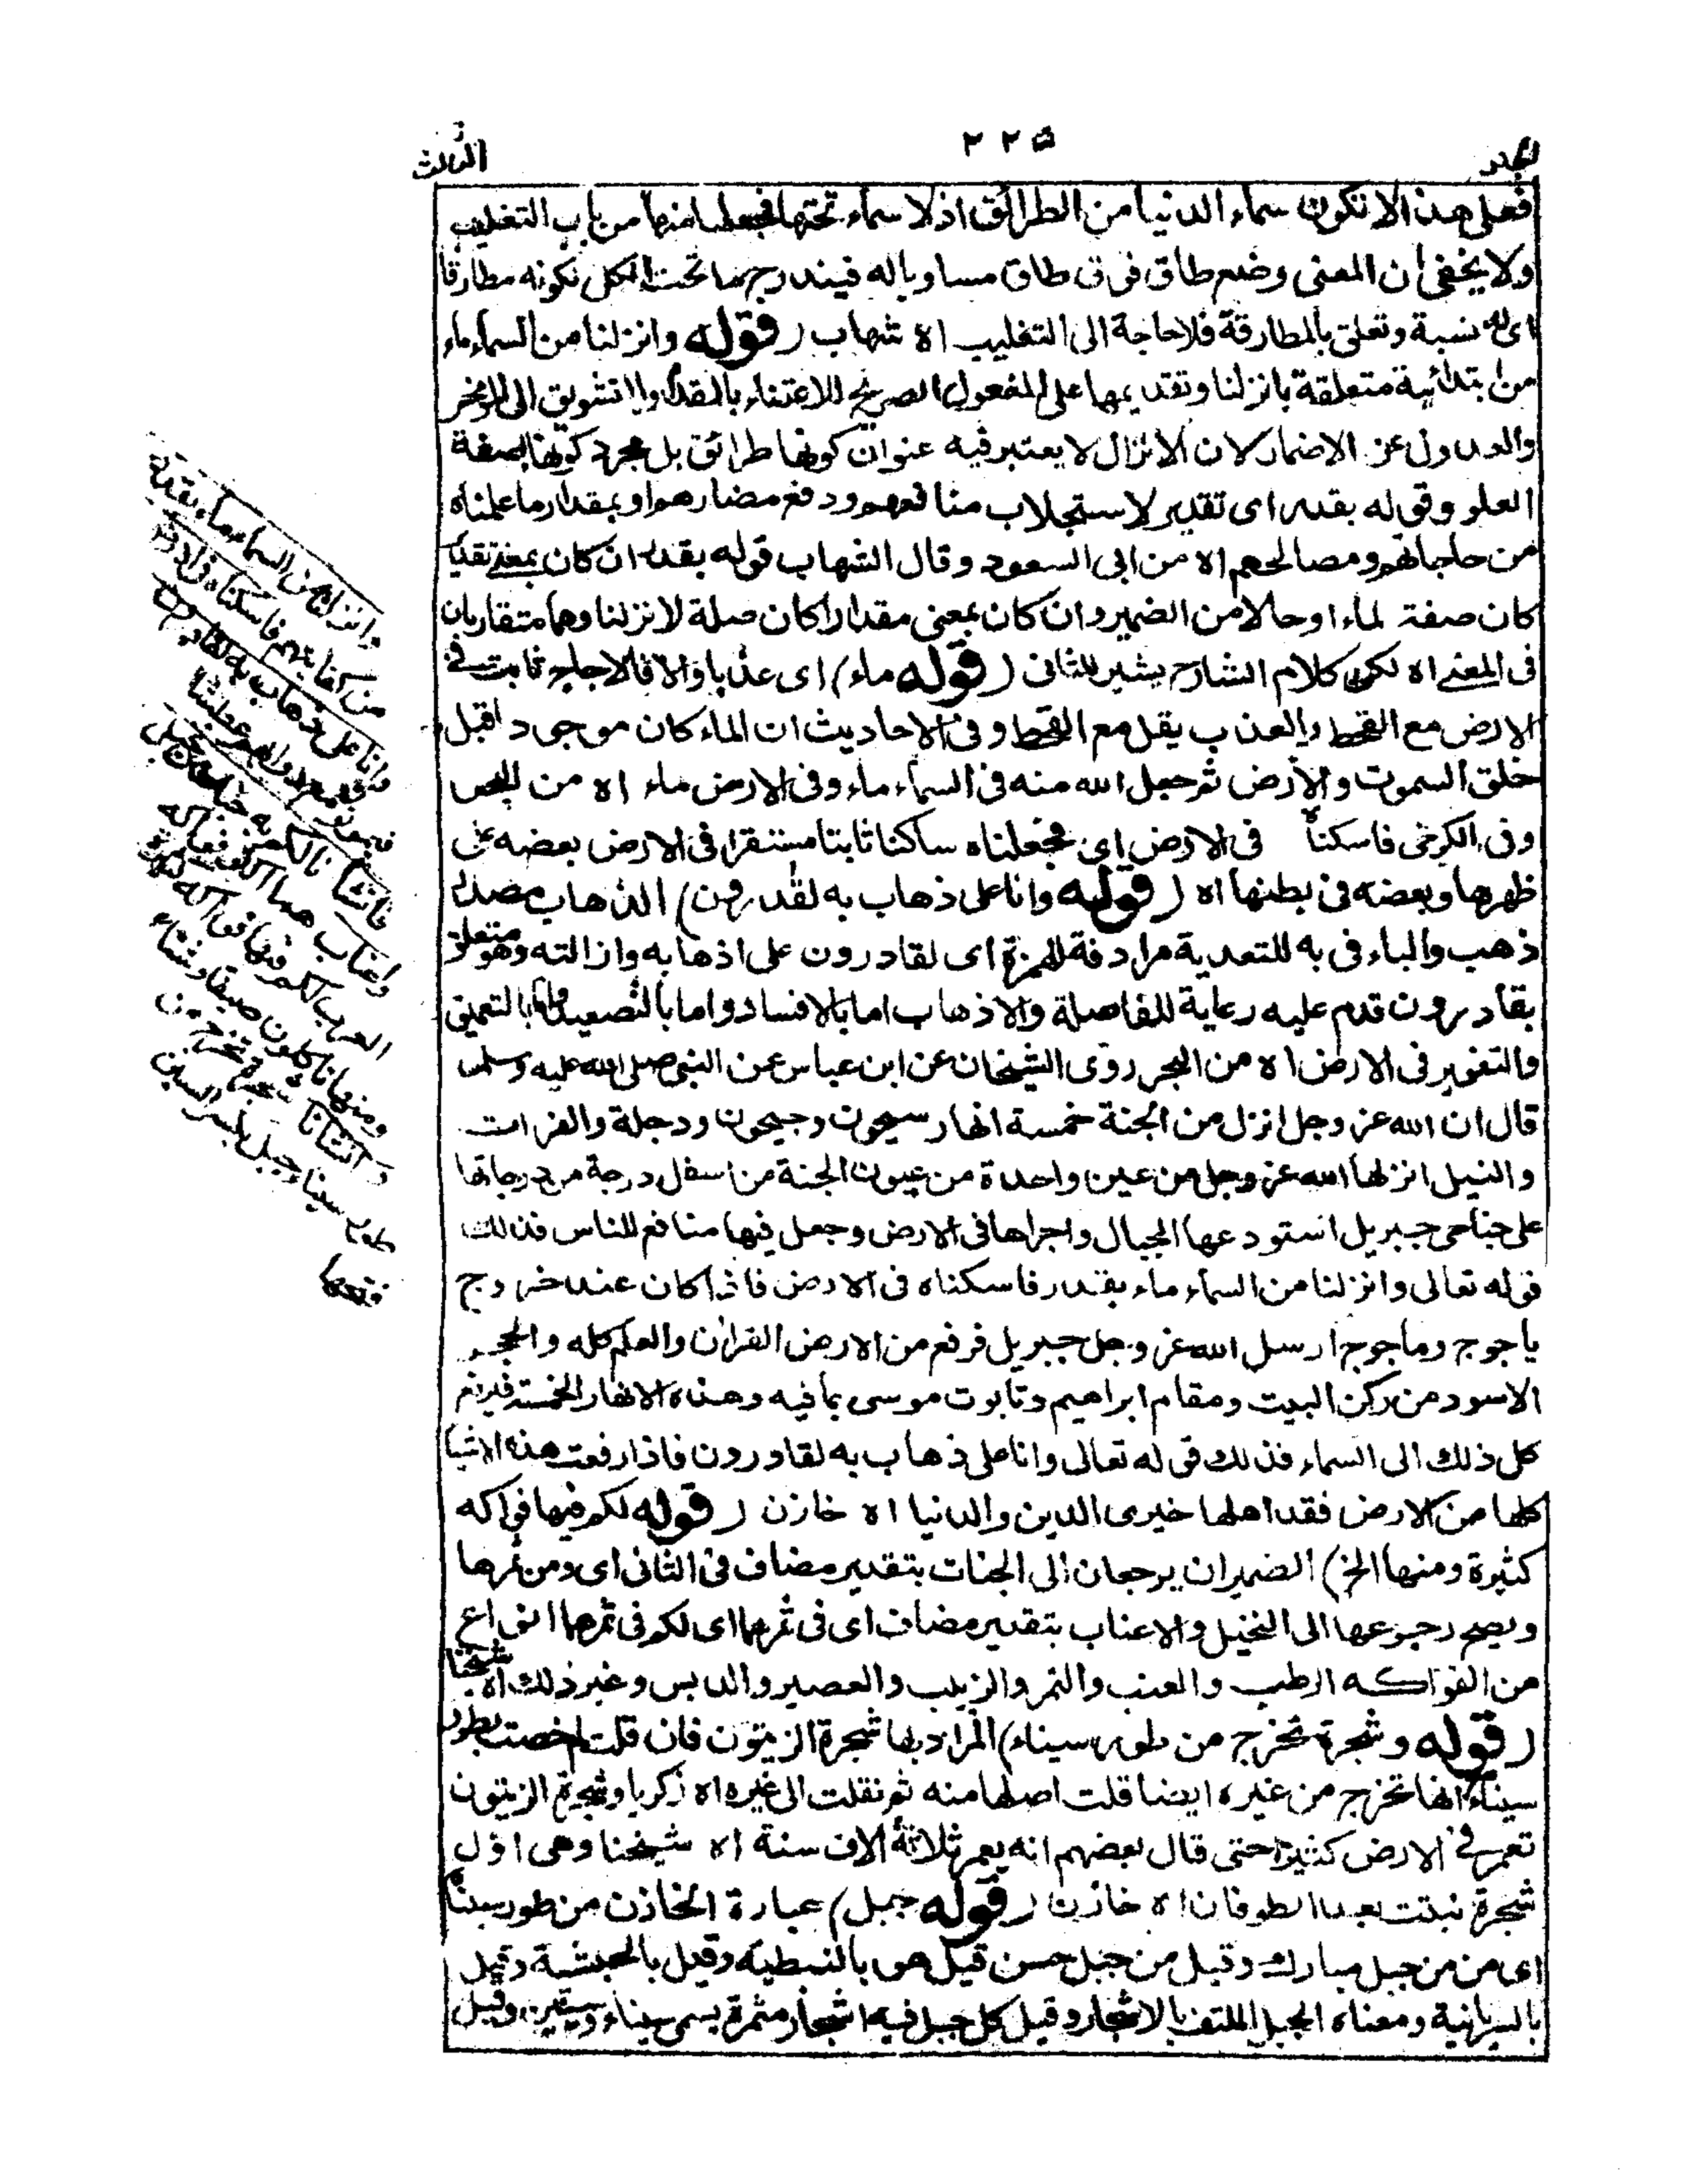 الجلد
٢٢٥
الثالث
فعلى هذا لا تكون سماء الدنيا من الطرائق اذ لا سماء تحتها فجعلها منها من باب التغليب
ولا يخفى ان المعنى وضع طاق فوق طاق مساويا له فيندرج ما تحت الكل لكونه مطارقا
اى له نسبة وتعلق بالمطارقة فلا حاجة الى التغليب اه شهاب (قوله وانزلنا من السماء ماء
من ابتدائية متعلقة بانزلنا وتقديمها على المفعول الصريح للاعتناء بالمقدم والتشويق الى المؤخر
والعدول عن الاضمار لان الانزال لا يعتبر فيه عنوان كونها طرائق بل مجرد كونها بصفة
العلو وقوله بقدر اى تقدير لاستجلاب منافعهم ودفع مضارهم او بمقدار ما علمناه
من حاجاتهم ومصالحهم اه من ابى السعود وقال الشهاب قوله بقدر ان كان بمعنى تقديرا
كان صفة لماء او حالا من الضمير وان كان بمعنى مقدارا كان صلة لانزلنا وهما متقاربان
فى المعنى اه لكن كلام الشارح يشير للثانى (قوله ماء) اى عذبا والا فالاجاج ثابت فى
الارض مع القحط والعذب يقل مع القحط وفى الاحاديث ان الماء كان موجودا قبل
خلق السموت والأرض ثم جعل الله منه فى السماء ماء وفى الارض ماء اه من البحر
وفى الكرخى فاسكناه فى الارض اى فجعلناه ساكنا ثابتا مستقرا فى الارض بعضه على
ظهرها وبعضه فى بطنها اه (قوله وانا على ذهاب به لقدرون) الذهاب مصدر
ذهب والباء فى به للتعدية مرادفة للهمزة اى لقادرون على اذهابه وازالته وهو متعلق
بقادرون قدم عليه رعاية للفاصلة والاذهاب اما بالافساد واما بالتصعيد واما بالتعميق
والتغوير فى الارض اه من البحر روى الشيخان عن ابن عباس عن النبى صلى الله عليه وسلم
قال ان الله عز وجل انزل من الجنة خمسة انهار سيحون وجيحون ودجلة والفرات
والنيل انزلها الله عز وجل من عين واحدة من عيون الجنة من اسفل درجة من درجاتها
على جناحى جبريل استودعها الجبال واجراها فى الارض وجعل فيها منافع للناس فذلك
قوله تعالى وانزلنا من السماء ماء بقدر فاسكناه فى الارض فاذا كان عند خروج
ياجوج وماجوج ارسل الله عز وجل جبريل فرفع من الارض القران والعلم كله والحجر
الاسود من ركن البيت ومقام ابراهيم وتابوت موسى بما فيه وهذه الانهار الخمسة فيرفع
كل ذلك الى السماء فذلك قوله تعالى وانا على ذهاب به لقادرون فاذا رفعت هذه الاشيا
كلها من الارض فقد اهلها خيرى الدين والدنيا اه خازن (قوله لكم فيها فواكه
كثيرة ومنها الخ) الضميران يرجعان الى الجنات بتقدير مضاف فى الثانى اى ومن ثمرها
ويصح رجوعها الى النخيل والاعناب بتقدير مضاف اى فى ثمرها اى لكم فى ثمرها انواع
من الفواكه الرطب والعنب والتمر والزبيب والعصير والدبس وغير ذلك اه شيخنا
(قوله وشجرة تخرج من طور سيناء) المراد بها شجرة الزيتون فان قلت لم خصت بطور
سيناء مع انها تخرج من غيره ايضا قلت اصلها منه ثم نقلت الى غيره اه زكريا وشجرة الزيتون
تعمر فى الارض كثيرا حتى قال بعضهم انه يعمر ثلاثة الاف سنة اه شيخنا وهى اول
شجرة نبتت بعد الطوفان اه خازن (قوله جبل) عبارة الخازن من طور سيناء
اى من من جبل مبارك وقيل من جبل حسن قيل هو بالنبطية وقيل بالحبشية وقيل
بالسريانية ومعناه الجبل الملتف بالاشجار وقيل كل جبل فيه اشجار مثمرة يسمى سيناء وسينين وقيل
وانزلنا من السماء ماء بقدر
من كفايتهم فاسكناه فى الارض
وانا على ذهاب به لقادرون
فيموتون مع دوابهم عطشا
فانشانا لكم به جنات من نخيل
واعناب هما اكثر فواكه
العرب لكم فيها فواكه كثيرة
ومنها تاكلون صيفا وشتاء
و انشانا شجرة تخرج من
طور سيناء جبل بكسر السين
وفتحها